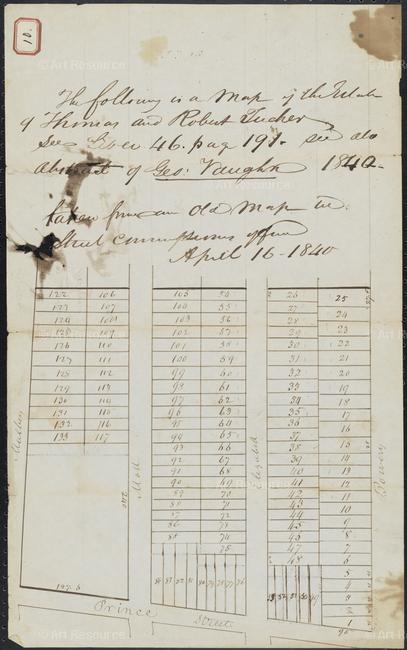 10.
The following is a Map of the Estate
of Thomas and Robert Tucker
See Liber 46. pag 191. see also
abstract of Geo: Vaughn 1840.
taken from an Old Map in
Street commissioners office
April 16 - 1840
122 106 105 54 26 25
123 107 104 55 27 24
124 108 103 56 28 23
125 109 102 57 29 22
126 110 101 58 30 21
127 111 100 59 31 20
128 112 99 60 32 19
129 113 98 61 33 18
130 97 62 34 17
131 115 96 63 35 16
132 116 95 64 36 15
133 117 94 65 37 14
93 66 38 13
92 67 39 12
91 68 40 11
90 69 41 10
89 70 42 9
88 71 43 8
87 72 44 7
86 73 45 6
85 74 46 5
75 47 4
48 3
2
1
Mulberry
Mott
Elizabeth
Bowery
240
84 83 82 81 80 79 78 77 76
53 52 51 50 49
Prince
Street
© Art Resource